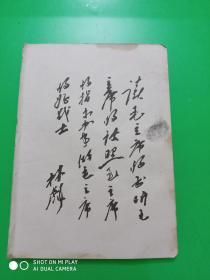 读毛主席的书听毛
主席的话照毛主席
的指示办事做毛主席
的好战士
林彪
MI PLAY
AI DUAL CAMERA